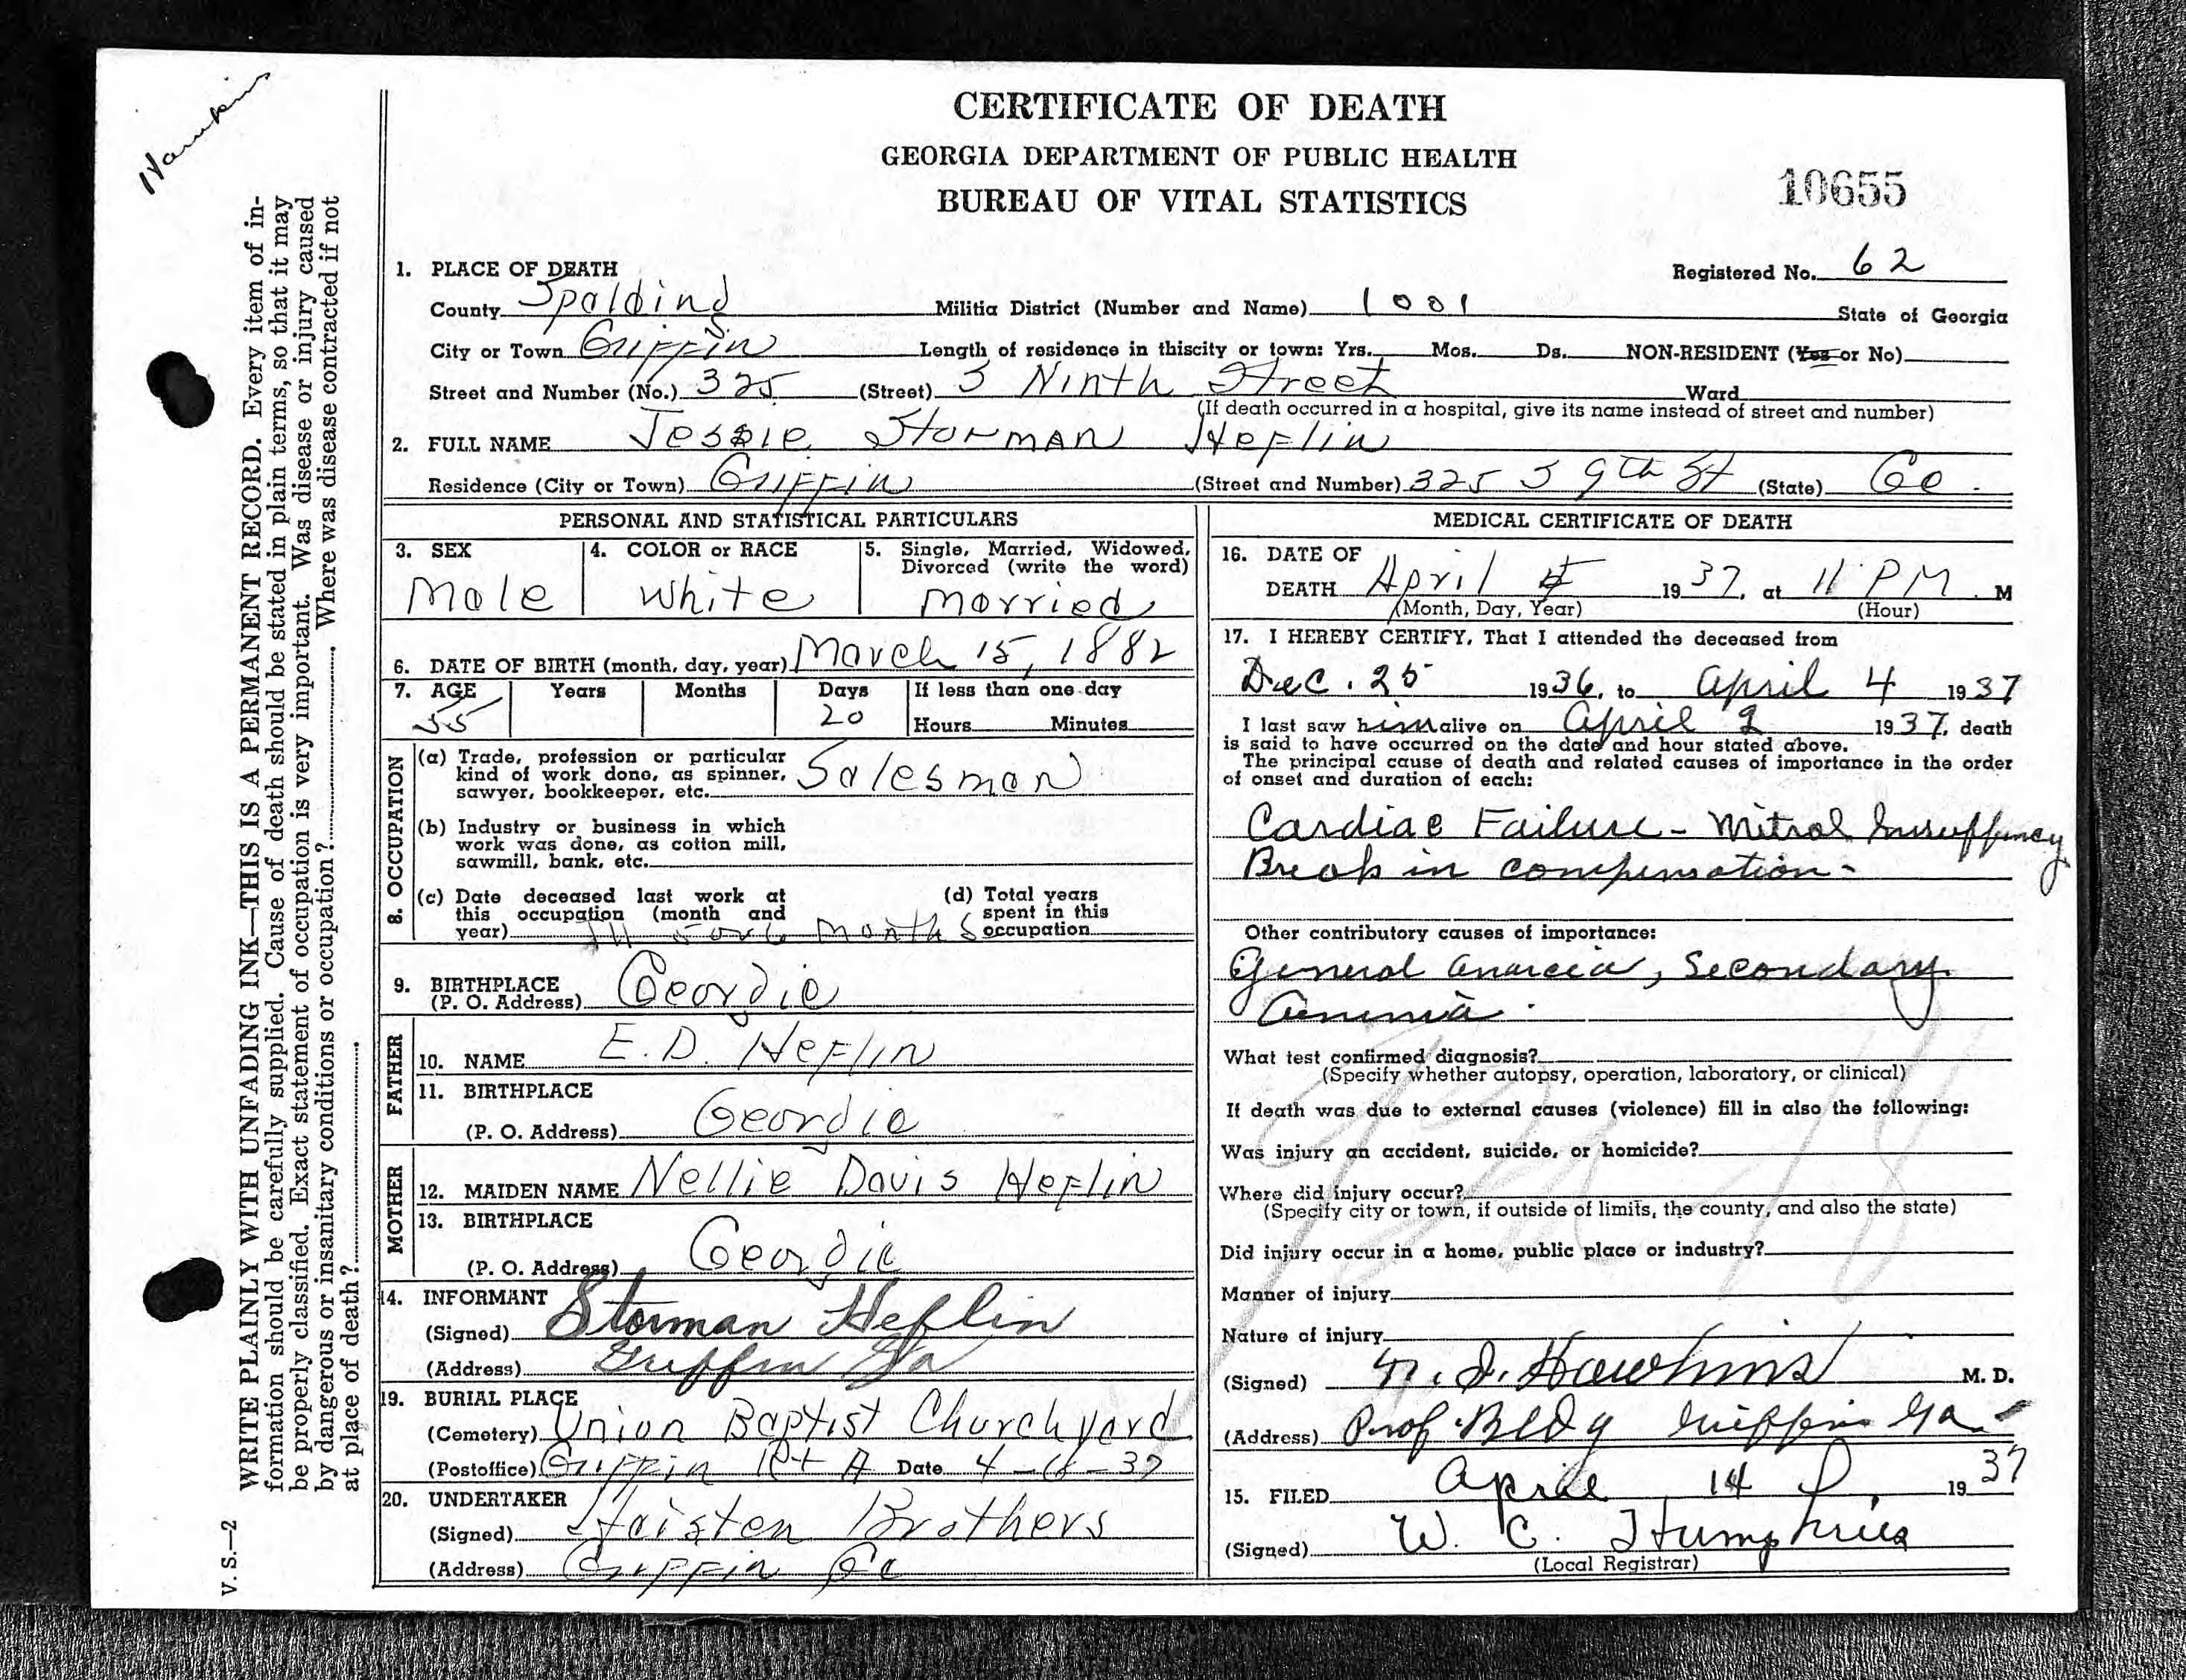 CERTIFICATE OF DEATH
GEORGIA DEPARTMENT OF PUBLIC HEALTH
BUREAU OF VITAL STATISTICS
10655
WRITE PLAINLY WITH UNFADING INK—THIS IS A PERMANENT RECORD. Every item of in-
formation should be carefully supplied. Cause of death should be stated in plain terms, so that it may
be properly classified. Exact statement of occupation is very important. Was disease or injury caused
by dangerous or insanitary conditions or occupation? Where was disease contracted if not
at place of death?
V. S.—2
Registered No. 62
1. PLACE OF DEATH
County Spalding Militia District (Number and Name) 1001 State of Georgia
City or Town Griffin Length of residence in thiscity or town: Yrs. Mos. Ds. NON-RESIDENT (Yes or No)
Street and Number (No.) 325 (Street) S Ninth Street Ward
(If death occurred in a hospital, give its name instead of street and number)
2. FULL NAME Jessie Storman Heflin
Residence (City or Town) Griffin (Street and Number) 325 S 9th St (State) Ga.
PERSONAL AND STATISTICAL PARTICULARS
3. SEX 4. COLOR or RACE 5. Single, Married, Widowed,
Divorced (write the word)
Male White Married
6. DATE OF BIRTH (month, day, year) March 15, 1882
7. AGE Years Months Days If less than one day
55 20 Hours Minutes
8. OCCUPATION
(a) Trade, profession or particular
kind of work done, as spinner,
sawyer, bookkeeper, etc. Salesman
(b) Industry or business in which
work was done, as cotton mill,
sawmill, bank, etc.
(c) Date deceased last work at
this occupation (month and
year) Ill 5 or 6 months
(d) Total years
spent in this
occupation
9. BIRTHPLACE
(P. O. Address) Georgia
FATHER
10. NAME E. D. Heflin
11. BIRTHPLACE
(P. O. Address) Georgia
MOTHER
12. MAIDEN NAME Nellie Davis Heflin
13. BIRTHPLACE
(P. O. Address) Georgia
14. INFORMANT
(Signed) Storman Heflin
(Address) Griffin Ga
19. BURIAL PLACE
(Cemetery) Union Baptist Churchyard
(Postoffice) Griffin Rt A Date 4-6-37
20. UNDERTAKER
(Signed) Haisten Brothers
(Address) Griffin Ga
MEDICAL CERTIFICATE OF DEATH
16. DATE OF
DEATH April 1937, at 11 PM. M
(Month, Day, Year) (Hour)
17. I HEREBY CERTIFY, That I attended the deceased from
Dec. 25 1936, to April 4 1937
I last saw him alive on April 2 1937, death
is said to have occurred on the date and hour stated above.
The principal cause of death and related causes of importance in the order
of onset and duration of each:
Cardiac Failure - Mitral Insuffuncy
Break in compensation -
Other contributory causes of importance:
General , Secondary
What test confirmed diagnosis?
(Specify whether autopsy, operation, laboratory, or clinical)
If death was due to external causes (violence) fill in also the following:
Was injury an accident, suicide, or homicide?
Where did injury occur?
(Specify city or town, if outside of limits, the county, and also the state)
Did injury occur in a home, public place or industry?
Manner of injury
Nature of injury
(Signed) Hawkins M. D.
(Address) Prof. Bldg Griffin Ga
15. FILED April 14, 1937
(Signed) W. C. Humphries
(Local Registrar)